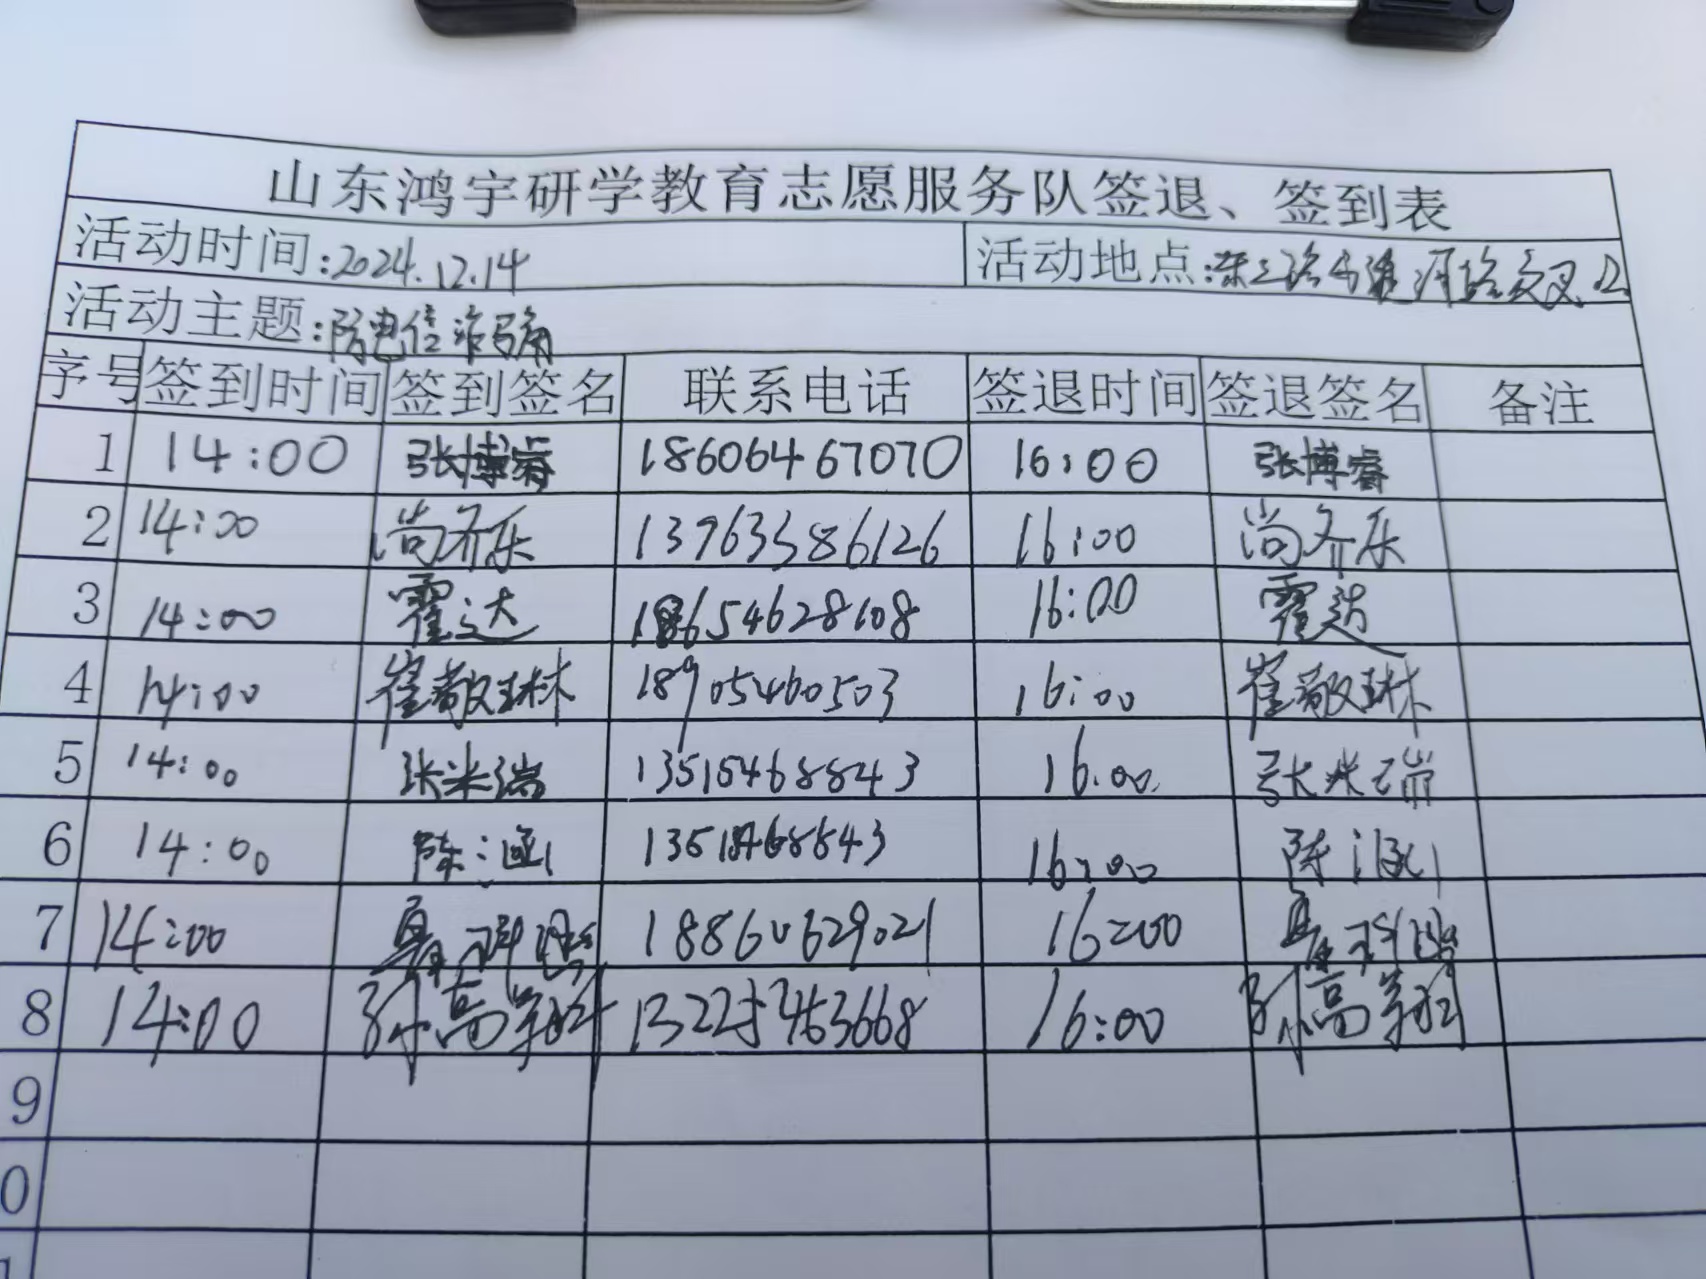 山东鸿宇研学教育志愿服务队签退、签到表
活动时间:2024.12.14 活动地点:
活动主题:防电信诈骗
序号 签到时间 签到签名 联系电话 签退时间 签退签名 备注
1 14:00 张博睿 18606467070 16:00 张博睿
2 14:00 尚齐乐 13963586126 16:00 尚齐乐
3 14:00 霍达 18654628108 16:00 霍达
4 14:00 崔敬琳 18905460503 16:00 崔敬琳
5 14:00 张米瑞 13515468843 16:00 张米瑞
6 14:00 陈涵 16:00 陈涵
7 14:00 18860629021 16:00
8 14:00 13225463668 16:00
9
0